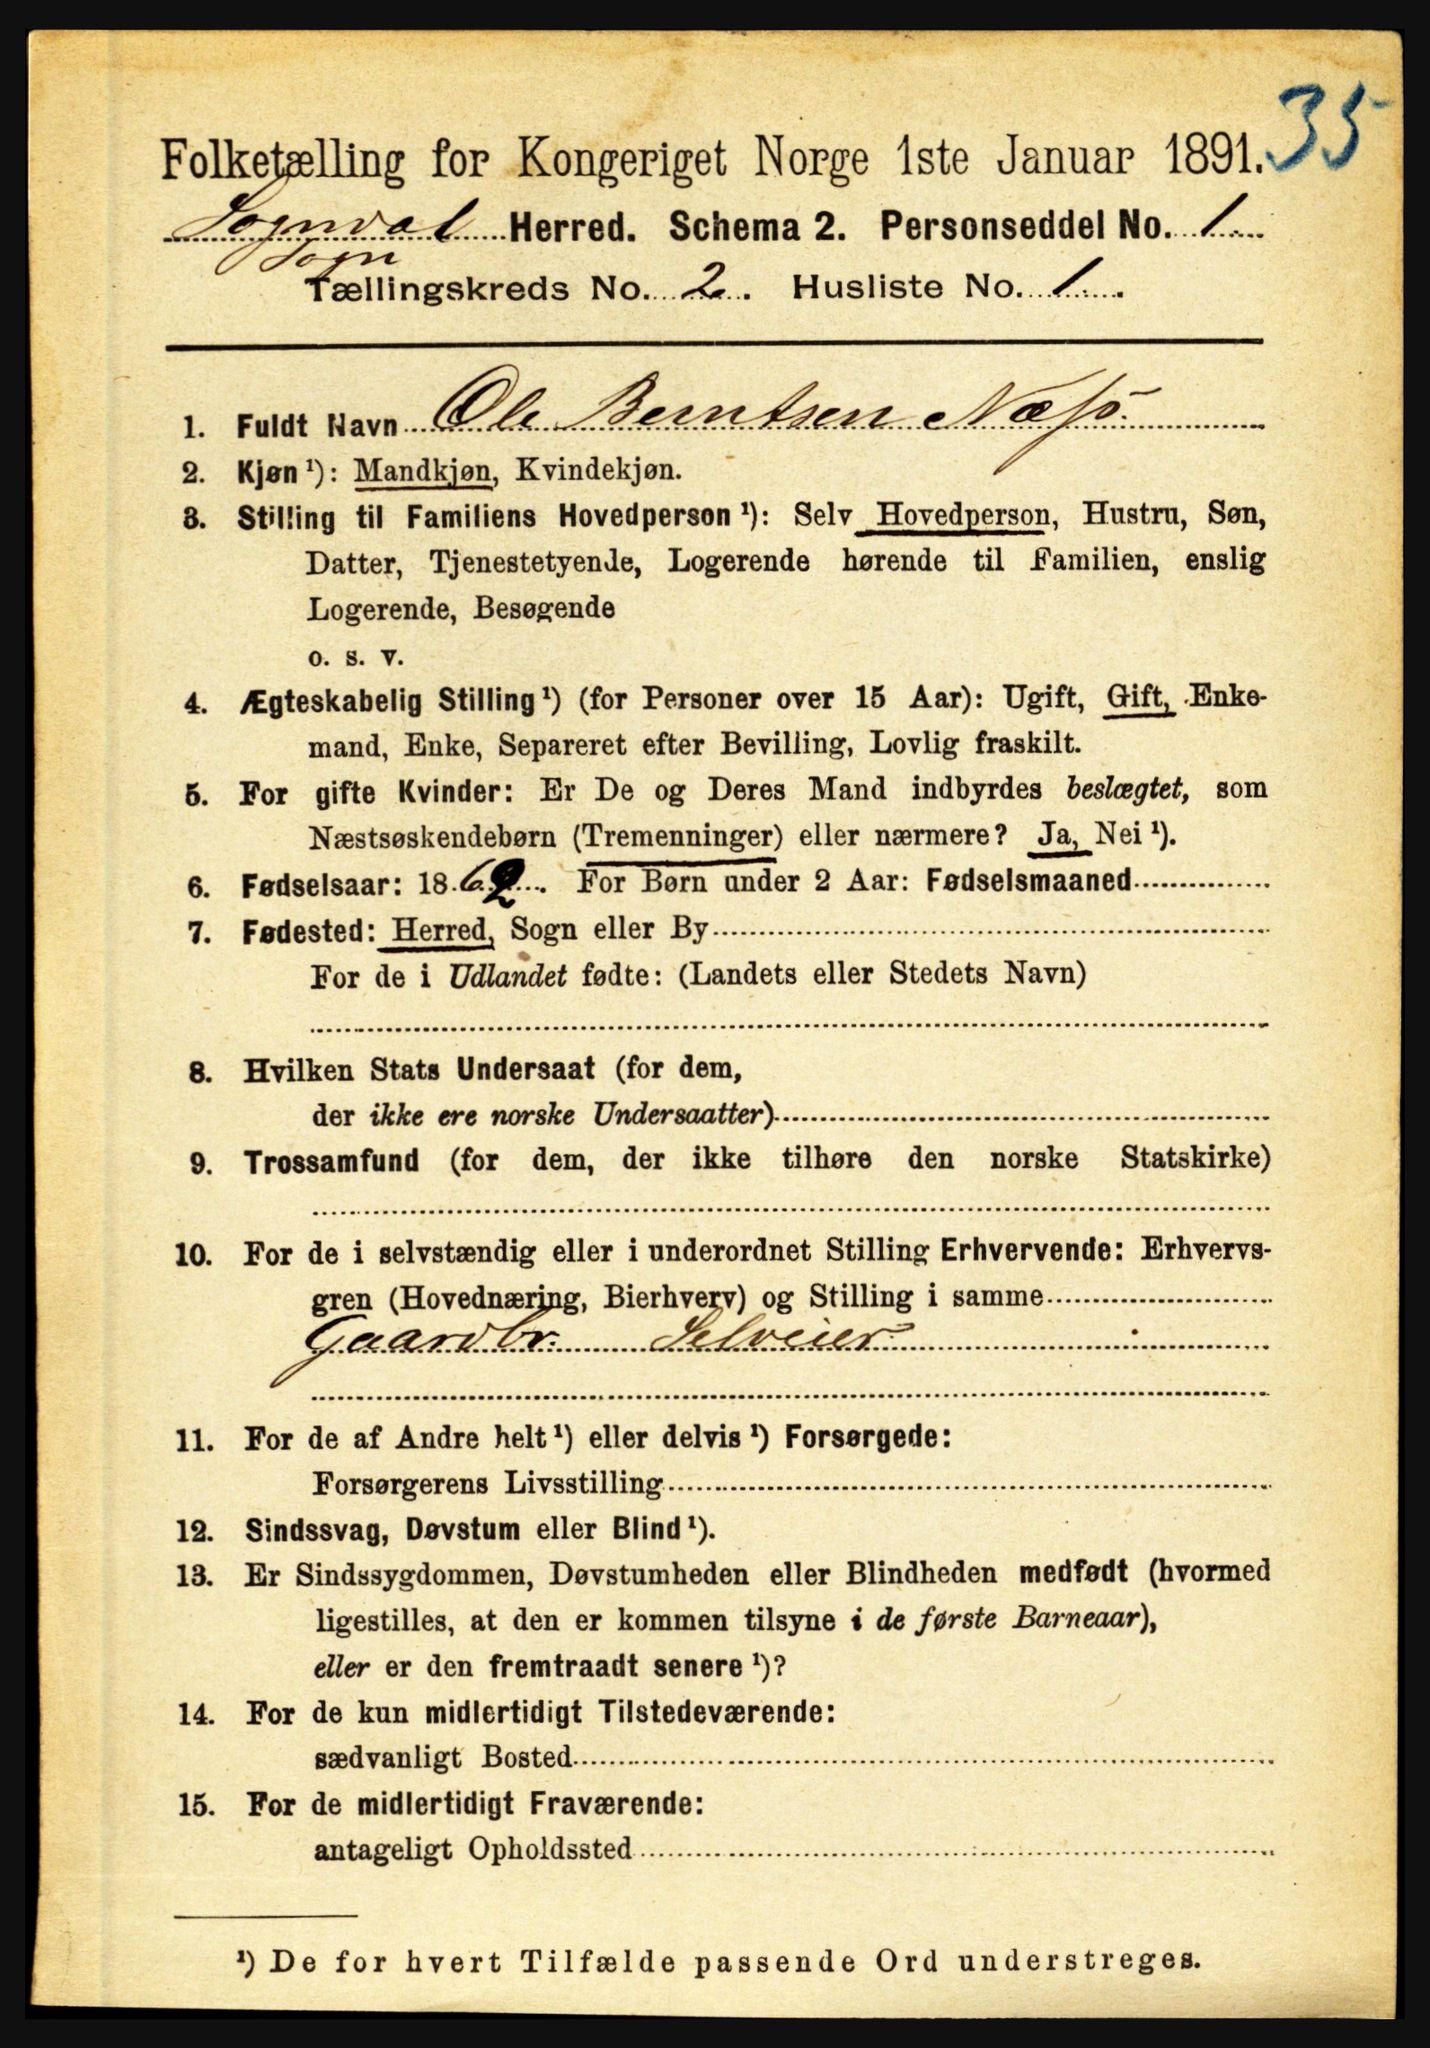 35
Folketælling for Kongeriget Norge 1ste Januar 1891.
Sogndal Herred. Schema 2. Personseddel No. 1
Sogn
Tællingskreds No. 2. Husliste No. 1.
1. Fuldt Navn Ole Berntsen Næss
2. Kjøn ¹): Mandkjøn, Kvindekjøn.
3. Stilling til Familiens Hovedperson ¹): Selv Hovedperson, Hustru, Søn,
Datter, Tjenestetyende, Logerende hørende til Familien, enslig
Logerende, Besøgende
o. s. v.
4. Ægteskabelig Stilling ¹) (for Personer over 15 Aar): Ugift, Gift, Enke-
mand, Enke, Separeret efter Bevilling, Lovlig fraskilt.
5. For gifte Kvinder: Er De og Deres Mand indbyrdes beslægtet, som
Næstsøskendebørn (Tremenninger) eller nærmere? Ja, Nei ¹).
6. Fødselsaar: 1862. For Børn under 2 Aar: Fødselsmaaned
7. Fødested: Herred, Sogn eller By
For de i Udlandet fødte: (Landets eller Stedets Navn)
8. Hvilken Stats Undersaat (for dem,
der ikke ere norske Undersaatter)
9. Trossamfund (for dem, der ikke tilhøre den norske Statskirke)
10. For de i selvstændig eller i underordnet Stilling Erhvervende: Erhvervs-
gren (Hovednæring, Bierhverv) og Stilling i samme
Gaardbr. Selveier
11. For de af Andre helt ¹) eller delvis ¹) Forsørgede:
Forsørgerens Livsstilling
12. Sindssvag, Døvstum eller Blind ¹).
13. Er Sindssygdommen, Døvstumheden eller Blindheden medfødt (hvormed
ligestilles, at den er kommen tilsyne i de første Barneaar),
eller er den fremtraadt senere ¹)?
14. For de kun midlertidigt Tilstedeværende:
sædvanligt Bosted
15. For de midlertidigt Fraværende:
antageligt Opholdssted
¹) De for hvert Tilfælde passende Ord understreges.